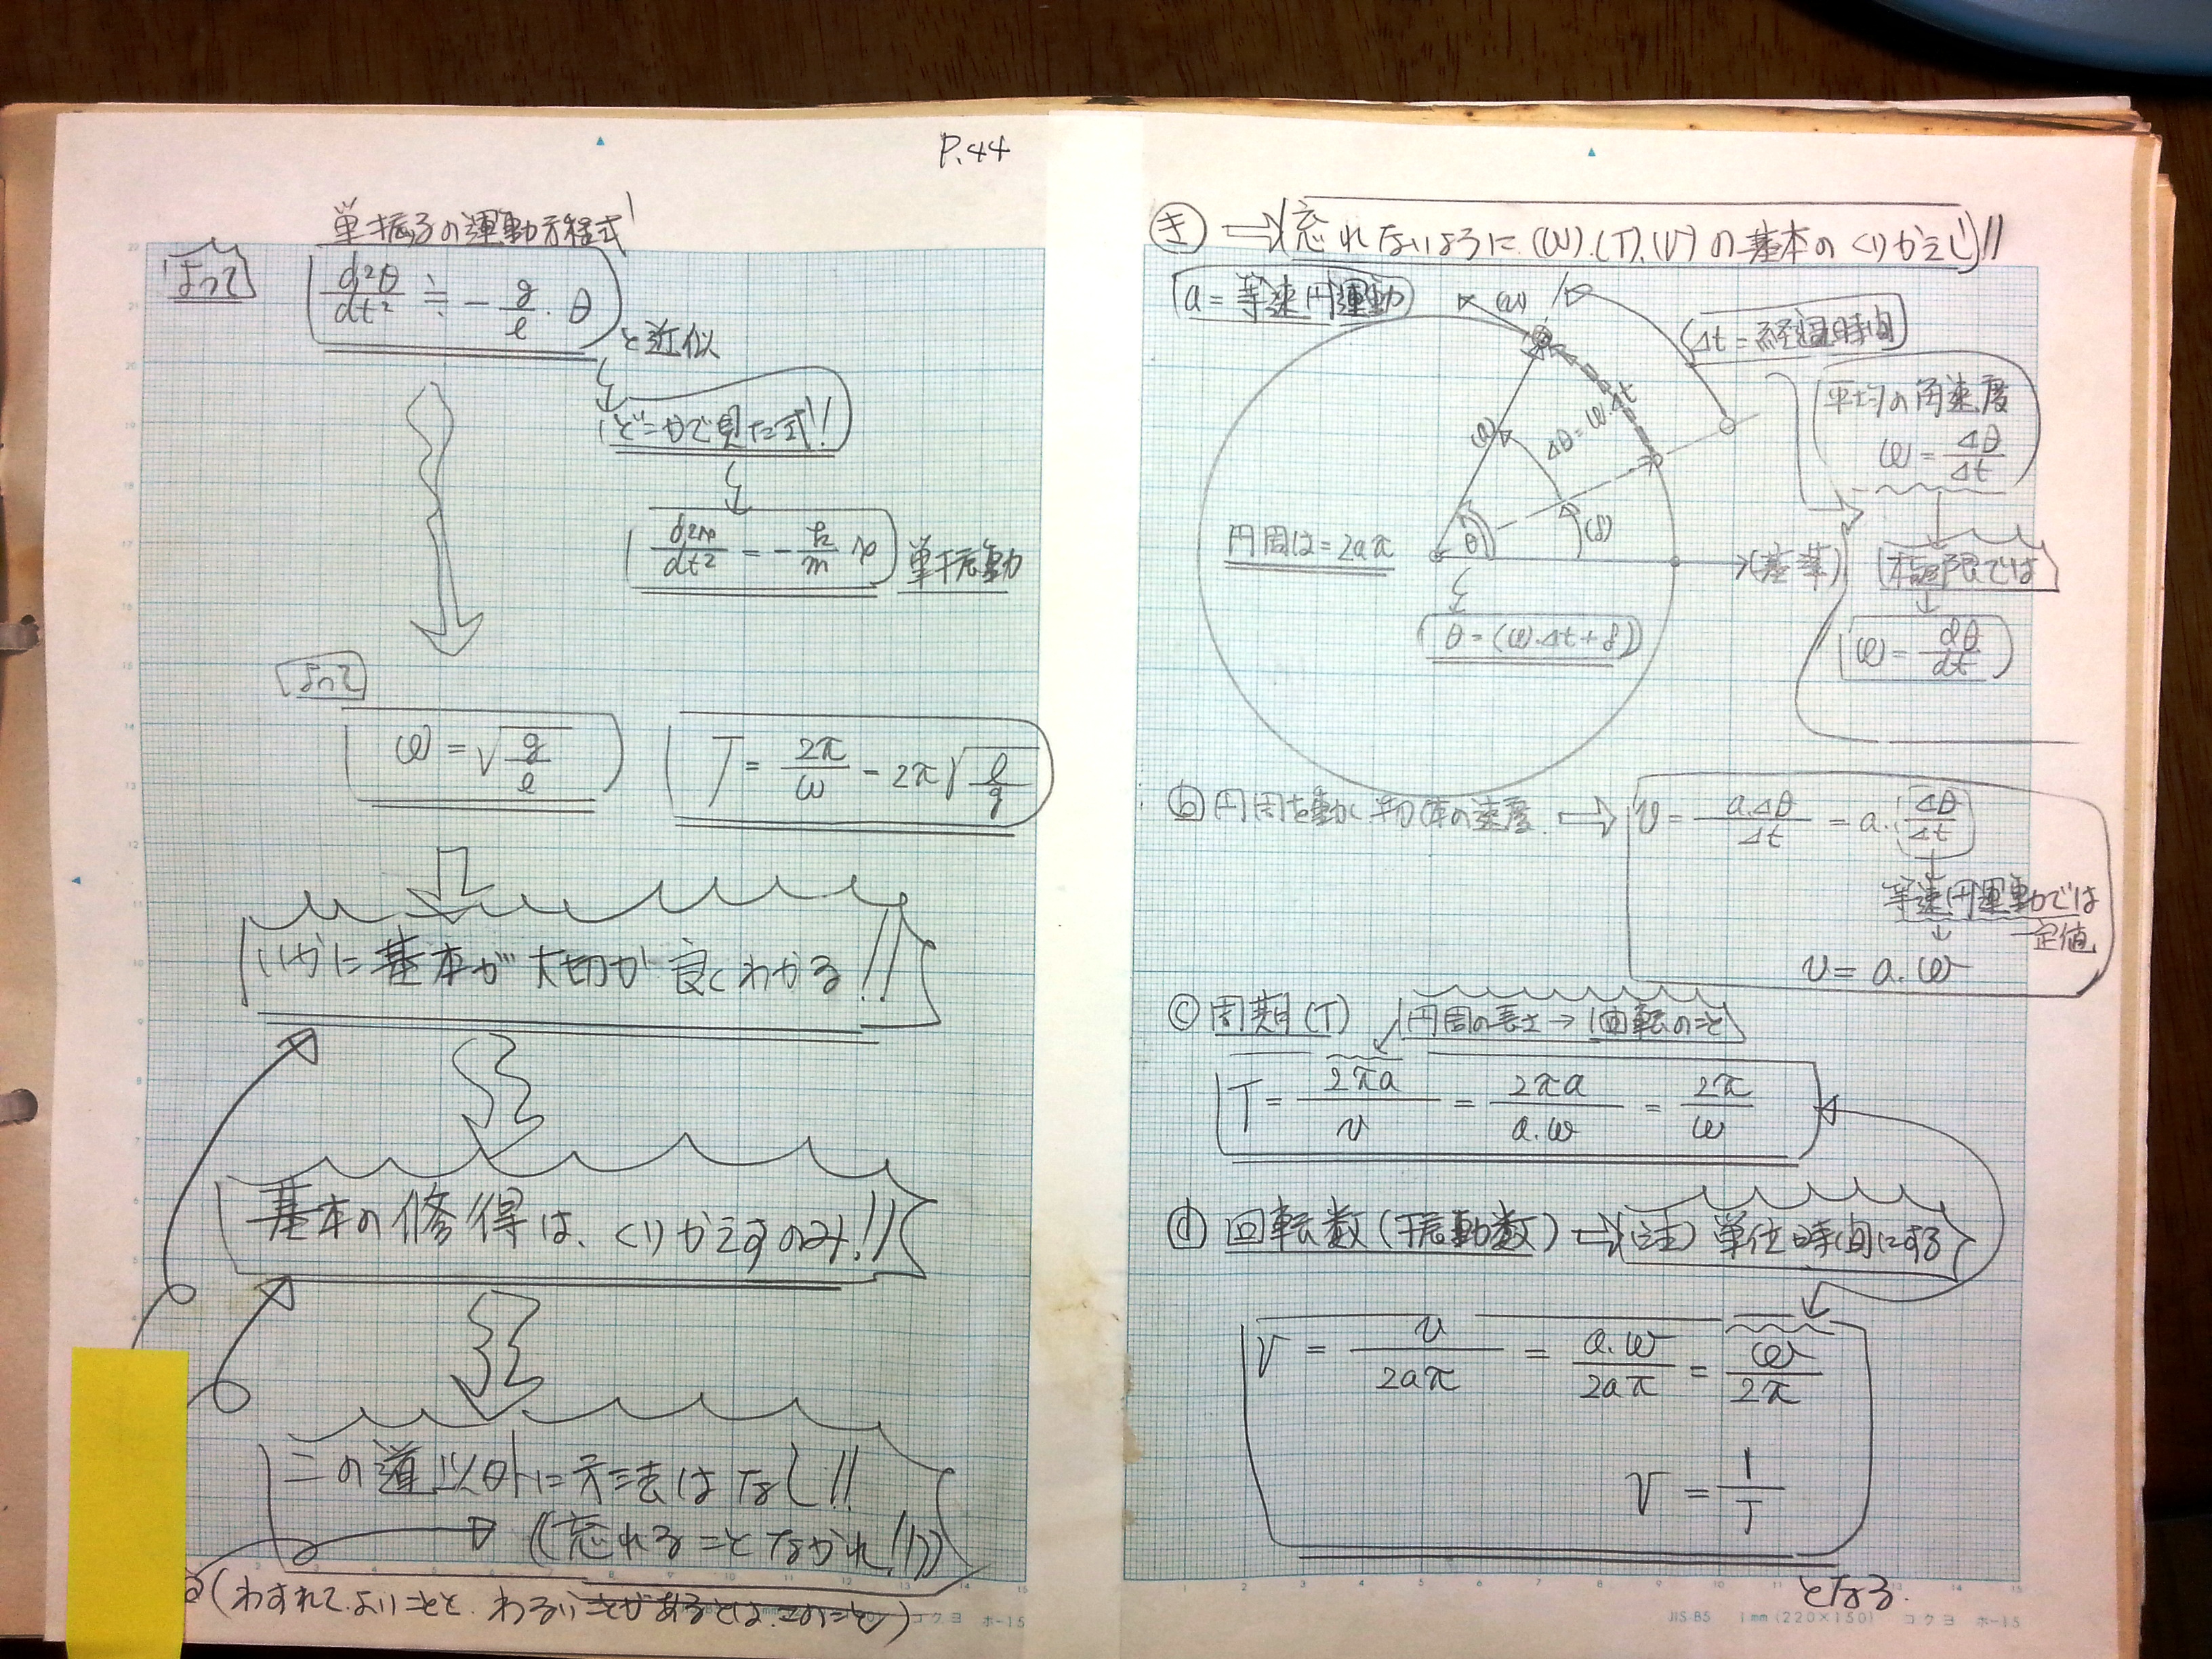 P.44
単振子の運動方程式
よって
d²θ/dt² ≒ - g/l · θ
と近似
どこかで見た式!!
d²x/dt² = - k/m x 単振動
よって
ω = √g/l
T = 2π/ω = 2π√l/g
いかに基本が大切か良くわかる!!
基本の修得は、くりかえすのみ!!
この道以外に方法はなし!!
(忘れることなかれ!!)
(わすれてよいことと、わるいことがあるとは、このこと)
コクヨ ホ-15
き ⇒ 忘れないように、(ω).(T).(V)の基本のくりかえし!!
a = 等速円運動
(ω)
Δt = 経過時間
平均の角速度
ω = Δθ/Δt
Δθ = ω.Δt
(a)
θ
(δ)
(基準)
極限では
ω = dθ/dt
円周は = 2aπ
θ = (ω.Δt + δ)
ⓑ 円周を動く物体の速度 ⇒ v = a.Δθ/Δt = a. Δθ/Δt
等速円運動では
一定値
v = a.ω
ⓒ 周期(T) 円周の長さ → 1回転のこと
T = 2πa/v = 2πa/a.ω = 2π/ω
ⓓ 回転数(振動数) ⇒ (注) 単位時間にする
ν = v/2aπ = a.ω/2aπ = ω/2π
ν = 1/T
となる.
JIS B5 1mm (220×150) コクヨ ホ-15